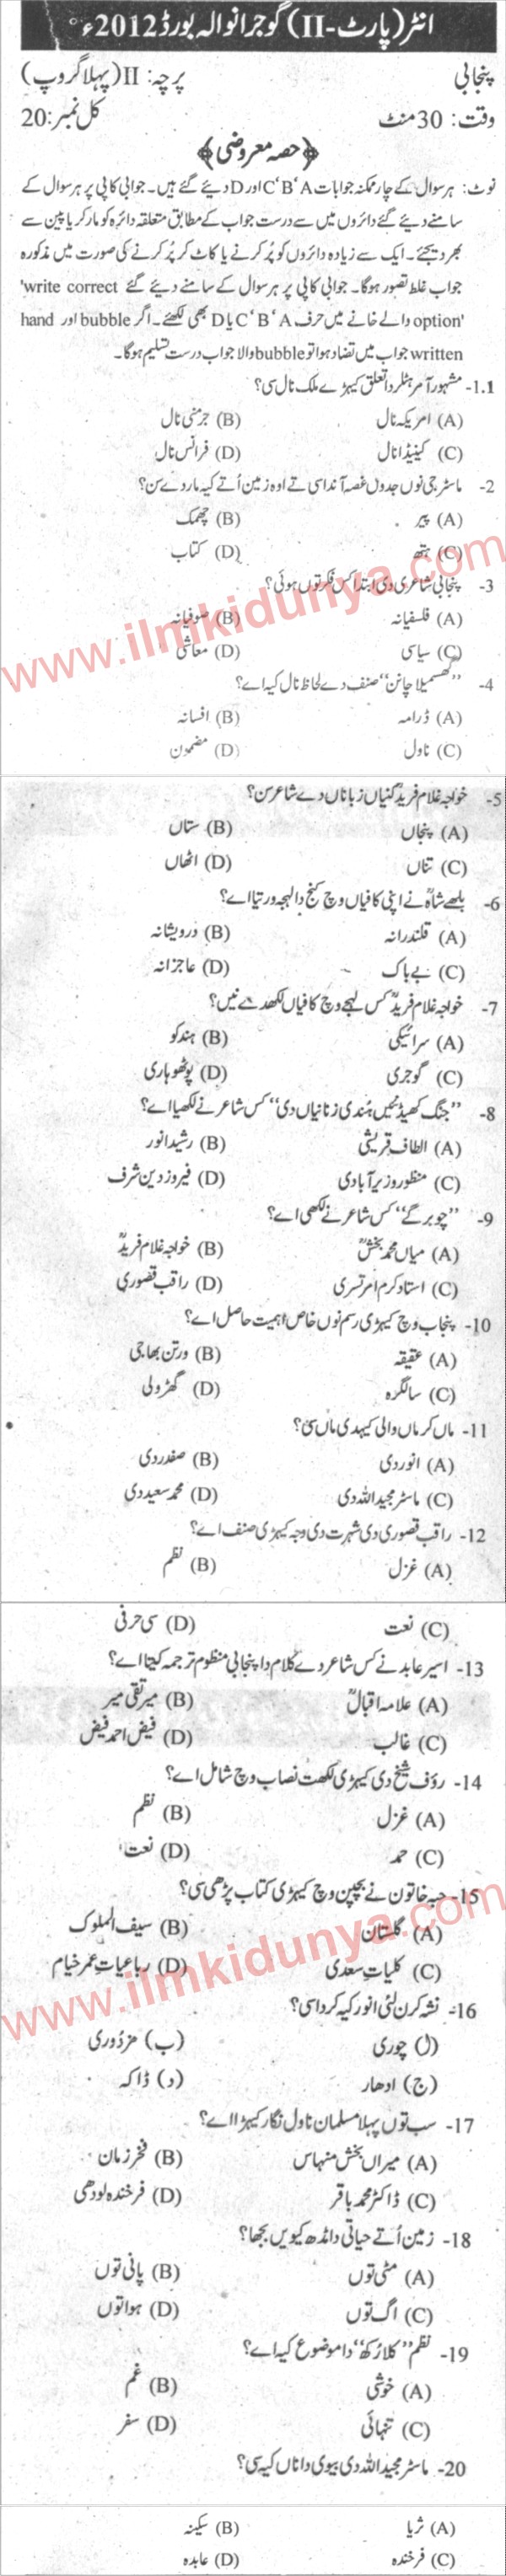 انٹر (پارٹ-II) گوجرانوالہ بورڈ 2012ء
پنجابی پرچہ: II (پہلا گروپ)
وقت: 30 منٹ کل نمبر: 20
﴿حصہ معروضی﴾
نوٹ: ہر سوال کے چار ممکنہ جوابات C'B'A اور D دیئے گئے ہیں۔ جوابی کاپی پر ہر سوال کے
سامنے دیئے گئے دائروں میں سے درست جواب کے مطابق متعلقہ دائرہ کو مارکر یا پین سے
بھر دیجئے۔ ایک سے زیادہ دائروں کو پُر کرنے یا کاٹ کر پُر کرنے کی صورت میں مذکورہ
جواب غلط تصور ہوگا۔ جوابی کاپی پر ہر سوال کے سامنے دیئے گئے 'write correct
option' والے خانے میں حرف C'B'A یا D بھی لکھئے۔ اگر bubble اور hand
written جواب میں تضاد ہوا تو bubble والا جواب درست تسلیم ہوگا۔
1.1- مشہور آمر ہٹلر دا تعلق کیہڑے ملک نال سی؟
(A) امریکہ نال (B) جرمنی نال
(C) کینیڈا نال (D) فرانس نال
2- ماسٹر جی نوں جدوں غصہ آندا سی تے اوہ زمین اُتے کیہ مار دے سن؟
(A) پیر (B) چھمک
(C) ہتھ (D) کتاب
3- پنجابی شاعری دی ابتدا کس فکر توں ہوئی؟
(A) فلسفیانہ (B) صوفیانہ
(C) سیاسی (D) معاشی
4- ”گھسمیلا چانن“ صنف دے لحاظ نال کیہ اے؟
(A) ڈرامہ (B) افسانہ
(C) ناول (D) مضمون
5- خواجہ غلام فریدؒ کنیاں زباناں دے شاعر سن؟
(A) پنجاں (B) ستاں
(C) تناں (D) اٹھاں
6- بلھے شاہؒ نے اپنی کافیاں وچ کنج دا لہجہ ورتیا اے؟
(A) قلندرانہ (B) درویشانہ
(C) بے باک (D) عاجزانہ
7- خواجہ غلام فریدؒ کس لہجے وچ کافیاں لکھدے نیں؟
(A) سرائیکی (B) ہندکو
(C) گوجری (D) پوٹھوہاری
8- ”جنگ کھیڈ نئیں ہُندی زنانیاں دی“ کس شاعر نے لکھیا اے؟
(A) الطاف قریشی (B) رشید انور
(C) منظور وزیر آبادی (D) فیروز دین شرف
9- ”چوبرگے“ کس شاعر نے لکھی اے؟
(A) میاں محمد بخشؒ (B) خواجہ غلام فریدؒ
(C) استاد کرم امرتسری (D) راقب قصوری
10- پنجاب وچ کیہڑی رسم نوں خاص اہمیت حاصل اے؟
(A) عقیقہ (B) ورتن بھاجی
(C) سالگرہ (D) گھڑولی
11- ماں کرماں والی کیہدی ماں سی؟
(A) انور دی (B) صفدر دی
(C) ماسٹر مجید اللہ دی (D) محمد سعید دی
12- راقب قصوری دی شہرت دی وجہ کیہڑی صنف اے؟
(A) غزل (B) نظم
(C) نعت (D) سی حرفی
13- اسیر عابد نے کس شاعر دے کلام دا پنجابی منظوم ترجمہ کیتا اے؟
(A) علامہ اقبالؒ (B) میر تقی میر
(C) غالب (D) فیض احمد فیض
14- رؤف شیخ دی کیہڑی لکھت نصاب وچ شامل اے؟
(A) غزل (B) نظم
(C) حمد (D) نعت
15- حبہ خاتون نے بچپن وچ کیہڑی کتاب پڑھی سی؟
(A) گلستان (B) سیف الملوک
(C) کلیاتِ سعدی (D) رباعیاتِ عمر خیام
16- نشہ کرن لئی انور کیہ کردا سی؟
(ل) چوری (ب) مزدوری
(ج) ادھار (د) ڈاکہ
17- سب توں پہلا مسلمان ناول نگار کیہڑا اے؟
(A) میراں بخش منہاس (B) فخر زمان
(C) ڈاکٹر محمد باقر (D) فرخندہ لودھی
18- زمین اُتے حیاتی دا مڈھ کیویں بجھا؟
(A) مٹی توں (B) پانی توں
(C) اگ توں (D) ہوا توں
19- نظم ”کلا رکھ“ دا موضوع کیہ اے؟
(A) خوشی (B) غم
(C) تنہائی (D) سفر
20- ماسٹر مجید اللہ دی بیوی دا ناں کیہ سی؟
(A) ثریا (B) سکینہ
(C) فرخندہ (D) عابدہ
www.ilmkidunya.com
www.ilmkidunya.com